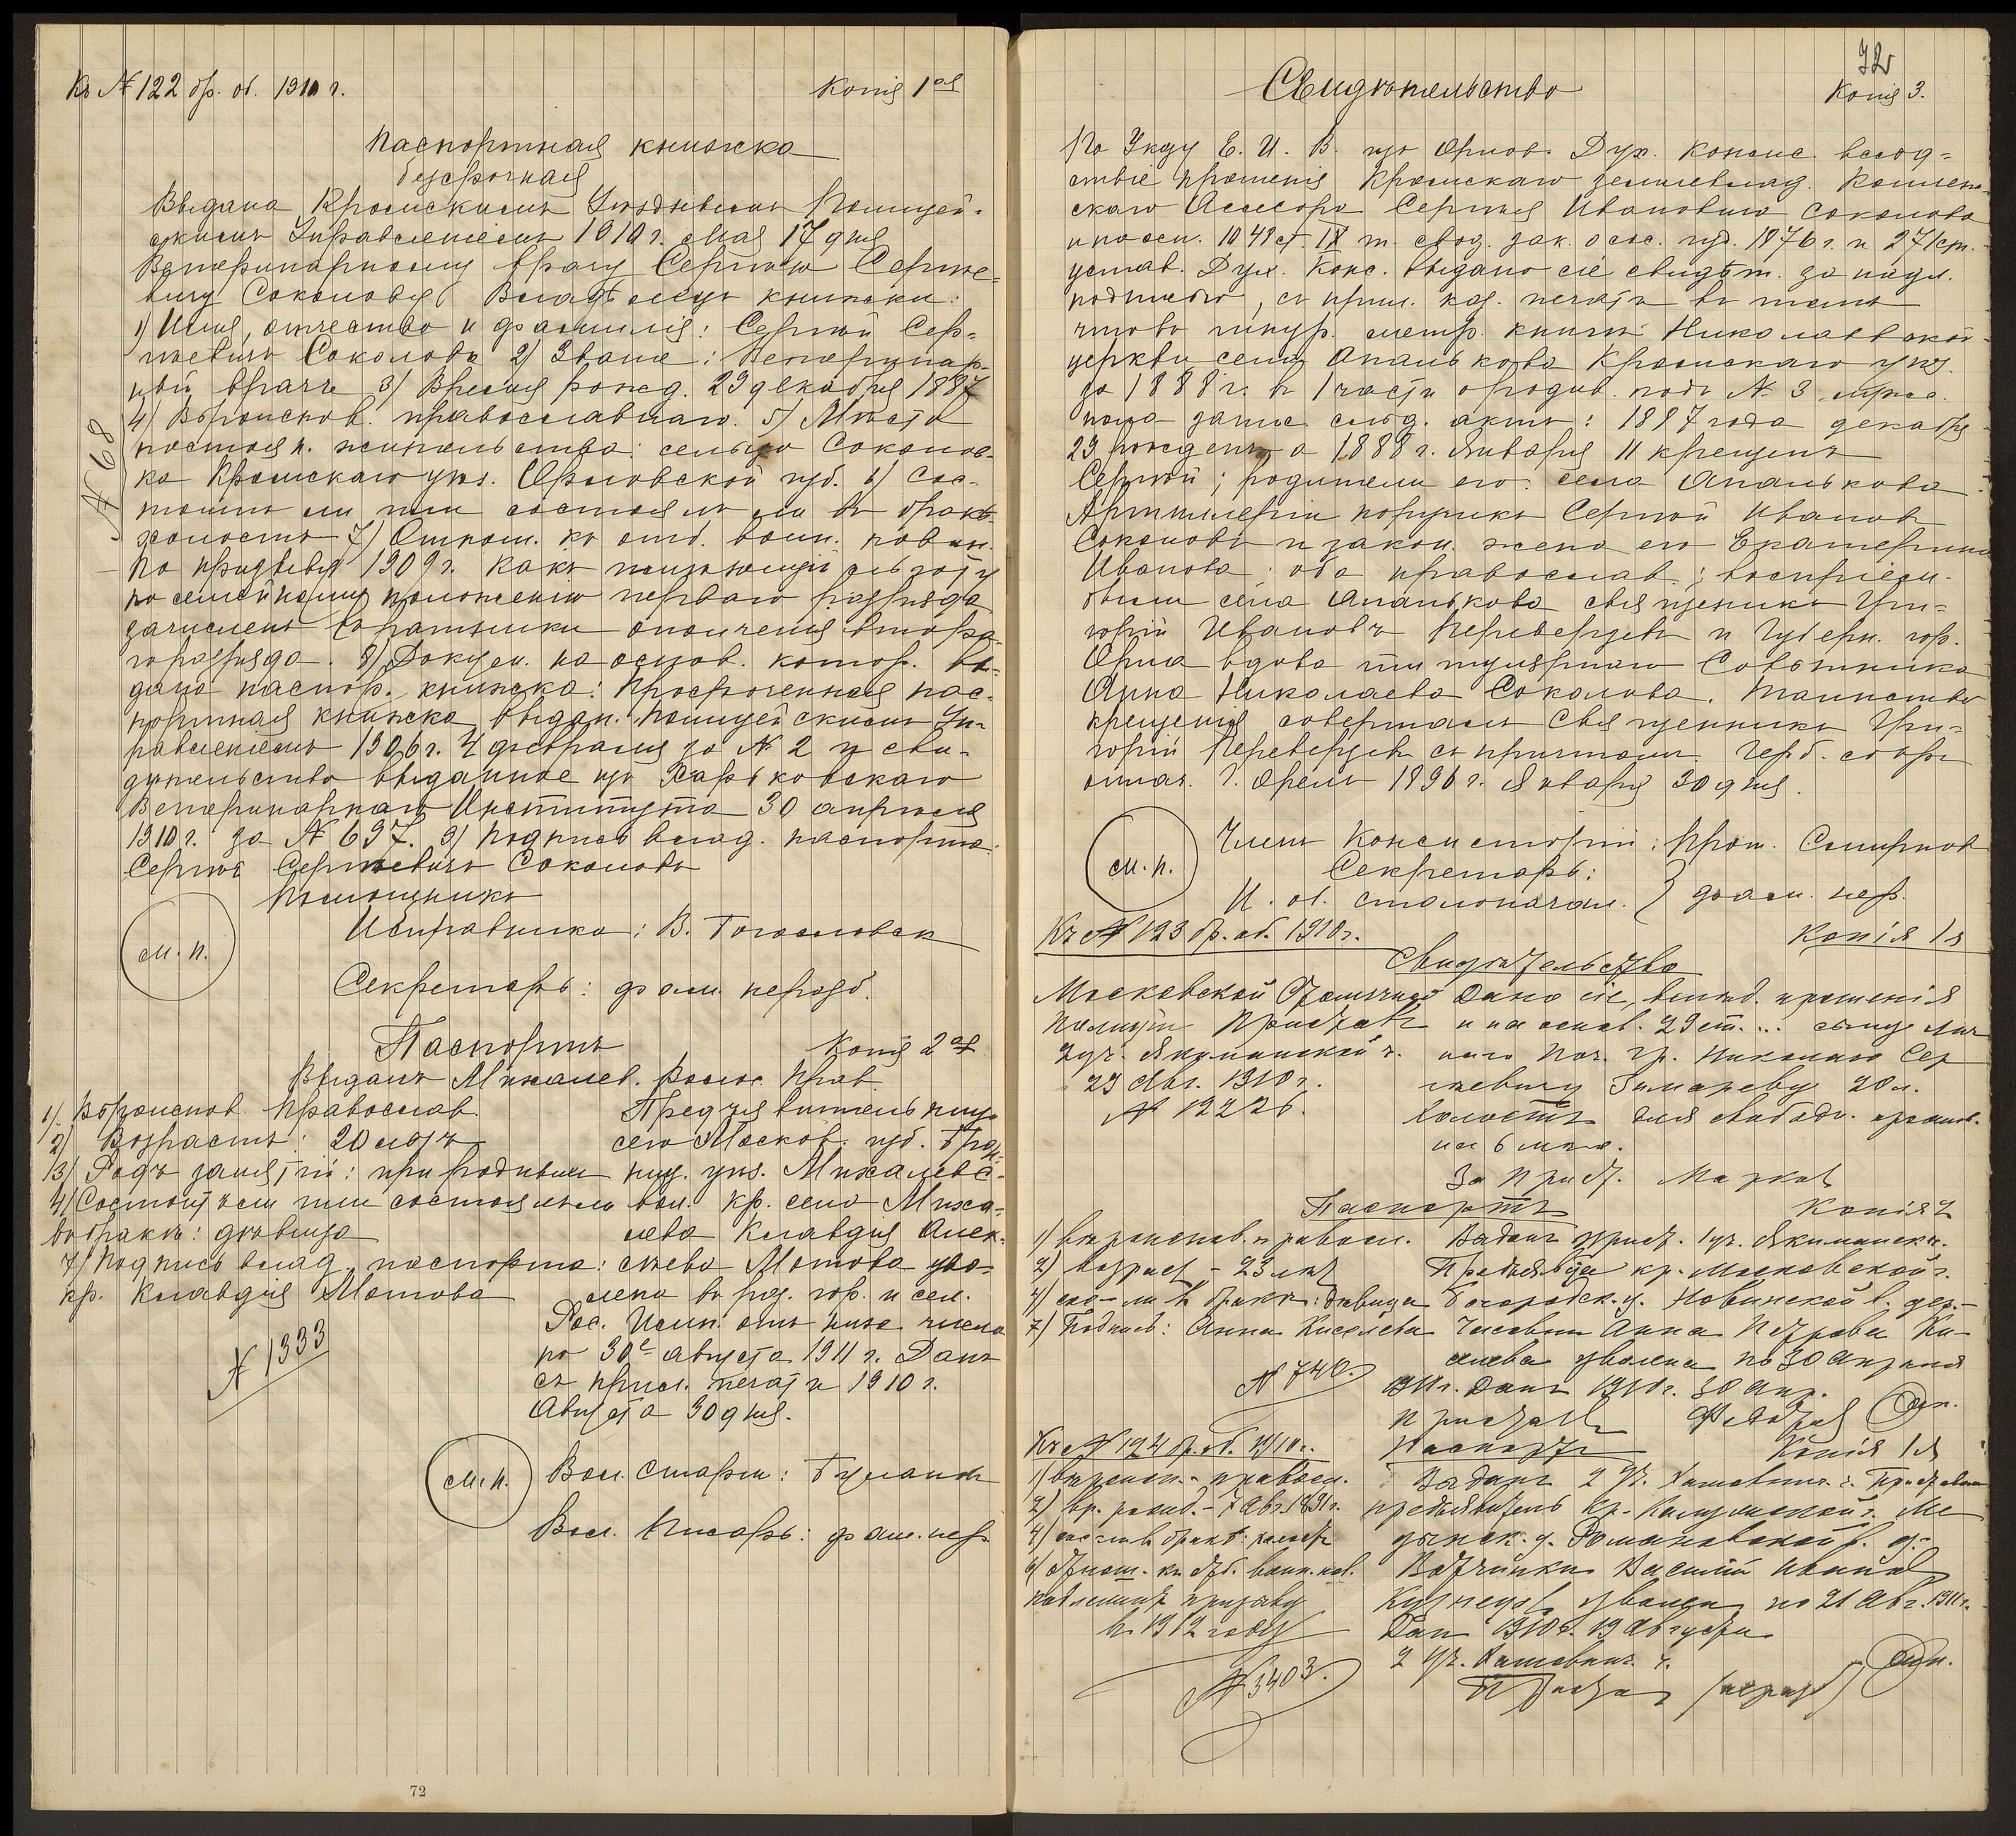 Къ № 122 бр. об. 1910 г. Копія 1ая
Паспортная книжка
безсрочная
Выдана Кромскимъ Уѣзднымъ Полицей-
скимъ Управленіемъ 1910 г. Мая 17 дня
Ветеринарному врачу Сергѣю Сергѣе-
вичу Соколову. Владѣлецъ книжки:
1) Имя, отчество и фамилія: Сергѣй Сер-
гѣевичъ Соколовъ 2) Званіе: Ветеринар-
ный врачъ 3) Время рожд. 29 декабря 1887
4) Вѣроисков. православнаго. 5) Мѣсто
постоян. жительства: сельцо Соколов-
ка Кромскаго уѣз. Орловской губ. 6) Сос-
тоитъ ли или состоялъ ли въ бракѣ
холостъ 7) Отнош. къ отб. воин. повин.
По призыву 1909 г. какъ имѣющій льготу
по семейному положенію перваго разряда
зачисленъ въ ратники ополченія второ-
го разряда. 8) Докум. на основ. котор. вы-
дана паспор. книжка: Просроченная пас-
портная книжка, выдан. Полицейскимъ Уп-
равленіемъ 1906 г. 4 февраля за № 2 и сви-
дѣтельство выданное изъ Харьковскаго
Ветеринарнаго Института 30 апрѣля
1910 г. за № 697. 9) Подпись влад. паспорта:
Сергѣй Сергѣевичъ Соколовъ
№ 68
Помощникъ
Исправника: В. Богословск
м. п.
Секретарь: фам. неразб.
Паспортъ Копія 2ая
Выданъ Михалев. Волос. Прав.
1) Вѣроиспов. Православ. Предъявительница
2) Возрастъ: 20 лѣтъ сего Москов. губ. Брон-
3) Родъ занятій: при родныхъ ниц. уѣз. Михалевс-
4) Состоитъ ли или состоялъ ли вол. кр. села Миха-
въ бракѣ: дѣвица лева Клавдія Алек-
7) Подпись влад. паспорта: сѣева Мотова уво-
кр. Клавдія Мотова лена въ раз. гор. и сел.
Рос. Имп. отъ ниже числа
по 30е августа 1911 г. Данъ
съ прил. печати 1910 г.
Августа 30 дня.
№ 1333
м. п. Вол. Старш.:
Вол. Писарь: фам. нер.
72
72
Свидѣтельство Копія 3.
По Указу Е. И. В. изъ Орлов. Дух. Консис. вслѣд-
ствіе прошенія Кромскаго землевлад. Коллеж-
скаго Ассесора Сергѣя Ивановича Соколова
и на осн. 1048 ст. IX т. свод. зак. о сос. изд. 1876 г. и 271 ст.
устав. Дух. Конс. выдано сіе свидѣт. за надл.
подписью, съ прил. каз. печати въ томъ
что въ шнур. метр. книгѣ Николаевской
церкви села Апалькова Кромскаго уѣз.
за 1888 г. въ I части о родив. подъ № 3 мужс.
пола запис. слѣд. актъ: 1887 года декабря
29 рожденъ а 1888 г. Января 11 крещенъ
Сергѣй; родители его: села Апалькова
Артиллеріи поручикъ Сергѣй Ивановъ
Соколовъ и закон. жена его Екатерина
Иванова; оба православ.; воспріем-
были села Апалькова священникъ Гри-
горій Ивановъ Переверзевъ и Губерн. гор.
Орла вдова титулярнаго Совѣтника
Анна Николаева Соколова. Таинство
крещенія совершалъ Священникъ Гри-
горій Переверзевъ съ причтомъ. Герб. сборъ
оплач. Г. Орелъ 1896 г. Января 30 дня.
м. п.
Членъ Консисторіи: Прот. Смирновъ
Секретарь:
И. об. столоначал. } фам. нер.
Къ № 123 бр. об. 1910 г. Копія 1я
Свидѣтельство
Московской Столичной Дано сіе, вслѣд. прошенія
Полиціи Приставъ и на основ. 29 ст. ...
2 уч. Якиманской ч. Поч. Гр. Николаю Сер
23 Авг. 1910 г. гѣевичу 20 л.
№ 12226. Холостъ для свободн. прожив.
на 6 мѣс.
За Прист. Марков
Паспортъ Копія 2
1) вѣроиспов. правосл. Выданъ прист. 1 уч. Якиманск. ч.
2) возраст - 23 лѣт Предъявит. кр. Московской г.
4) сос-ли въ бракѣ: дѣвица Богородск. у. Новинской в. дер.-
7) Подпись: Анна Киселева Анна Петрова Ки-
селева уволена по 30 Апрѣля
№ 740. 1911 г. Данъ 1910 г. 30 Апр.
приставъ
Къ № 124 бр. об. 1910 г. Паспортъ Копія 1я
1) вѣроисп. - правосл. Выданъ 2 уч. Хамовнич. ч. Приставомъ
2) вр. рожд. - 7 Авг. 1891 г. предъявитель кр. Калужской г. Ме
4) сос-ли въ бракѣ: холостъ дынск. у. Романовской в. д.
6) отнош. къ отб. воин. пов. Василій Иванов
подлежитъ призыву Кузнецовъ уволенъ по 21 Авг. 1911 г.
въ 1912 году Дан 1910 г. 19 Августа
2 уч. Хамовнич. ч.
№ 3403. Пристав (нераз)